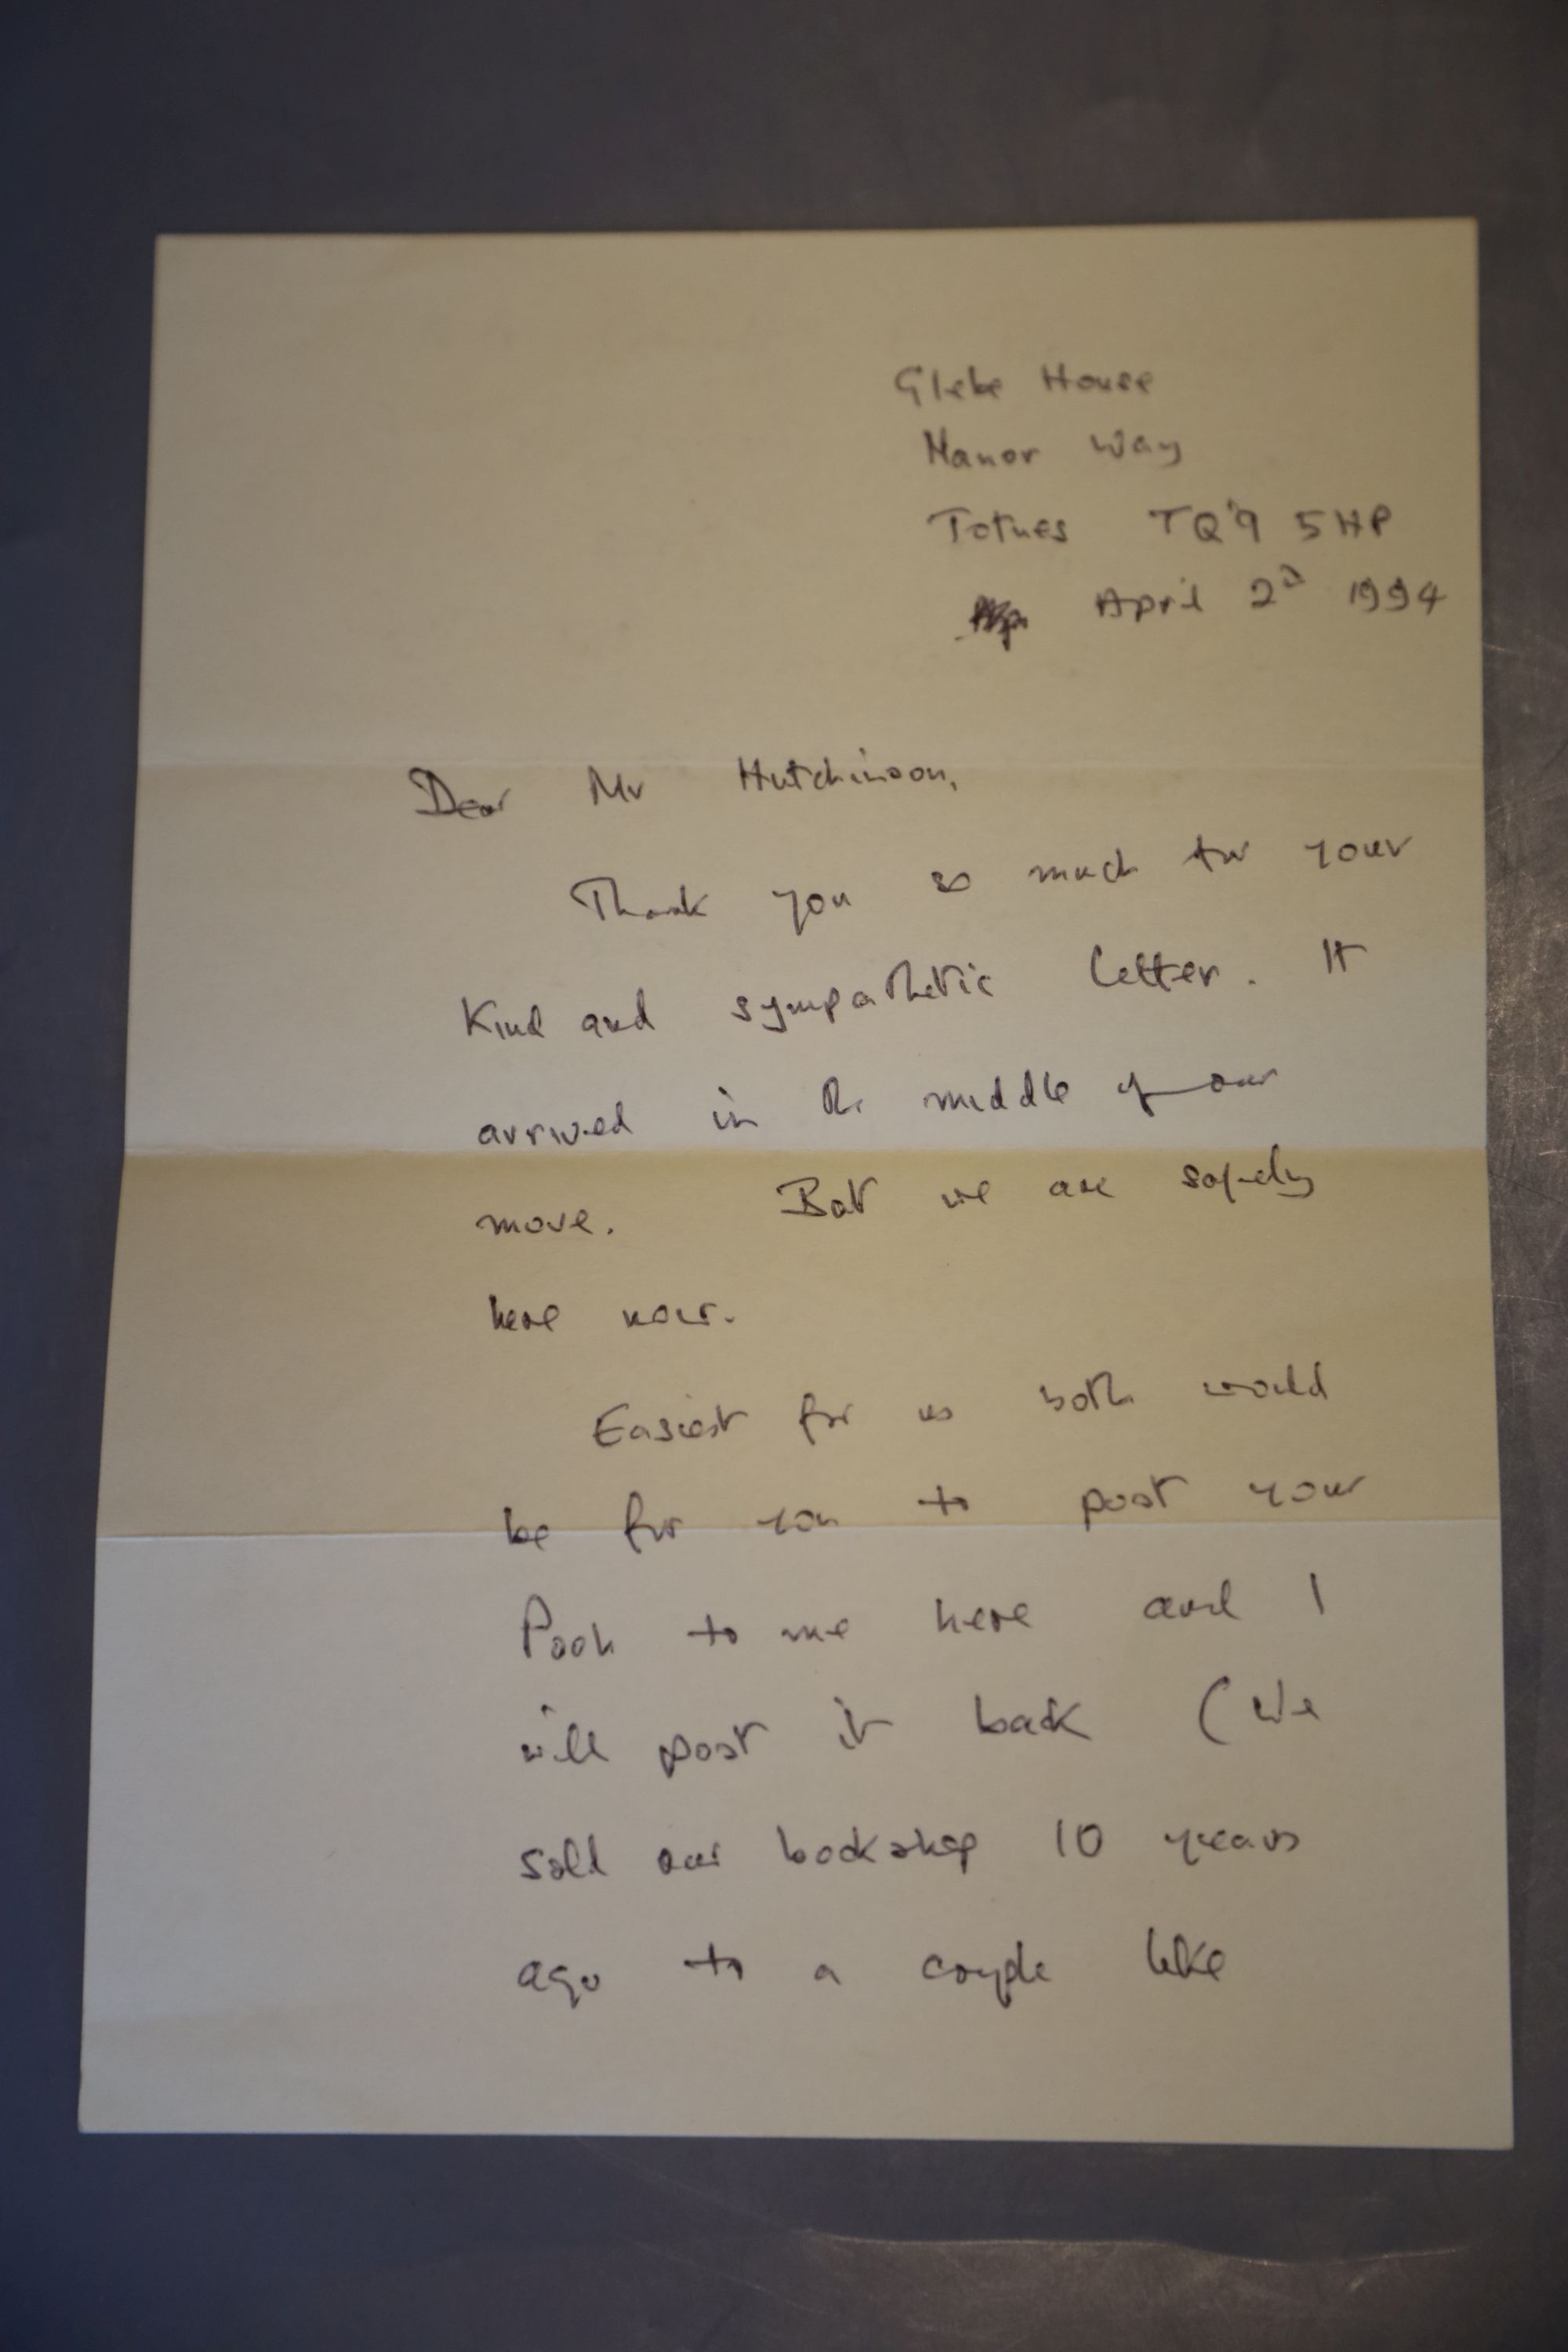 Glebe House
Manor Way
Totnes TQ9 5HP
April 2d 1994
Dear Mr Hutchinson,
Thank you so much for your
kind and sympathetic letter. It
arrived in the middle of our
move. But we are safely
here now.
Easiest for us both would
be for you to post your
Pooh to me here and I
will post it back (We
sold our bookshop 10 years
ago to a couple like